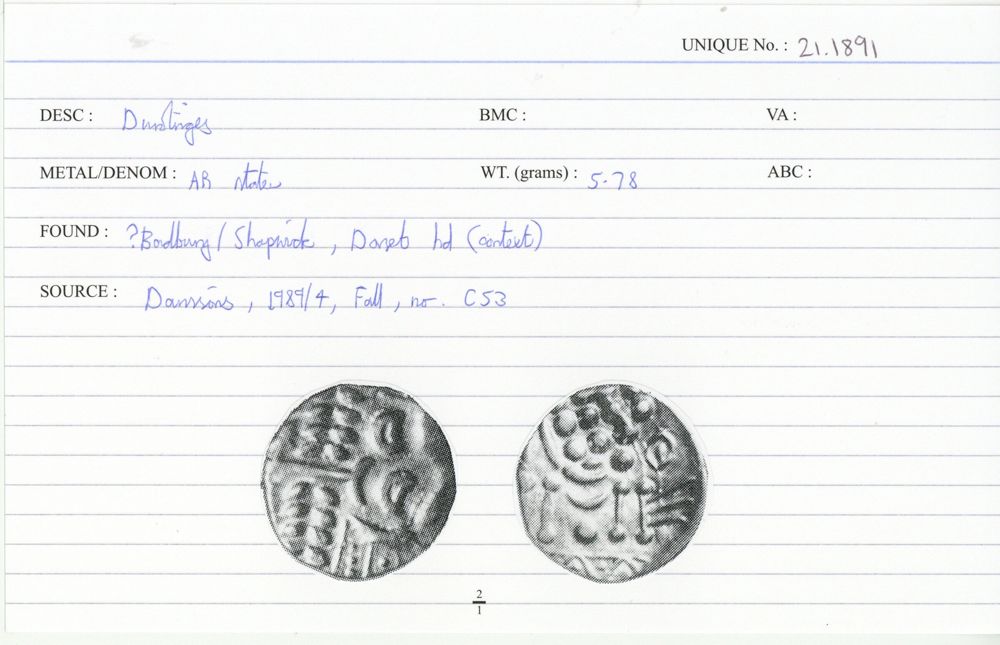 UNIQUE No. : 21.1891
DESC : Durotriges BMC : VA :
METAL/DENOM : AR stater WT. (grams) : 5.78 ABC :
FOUND : ?Badbury / Shapwick, Dorset hd (context)
SOURCE : 1989/4, Fall, no. C53
2
1